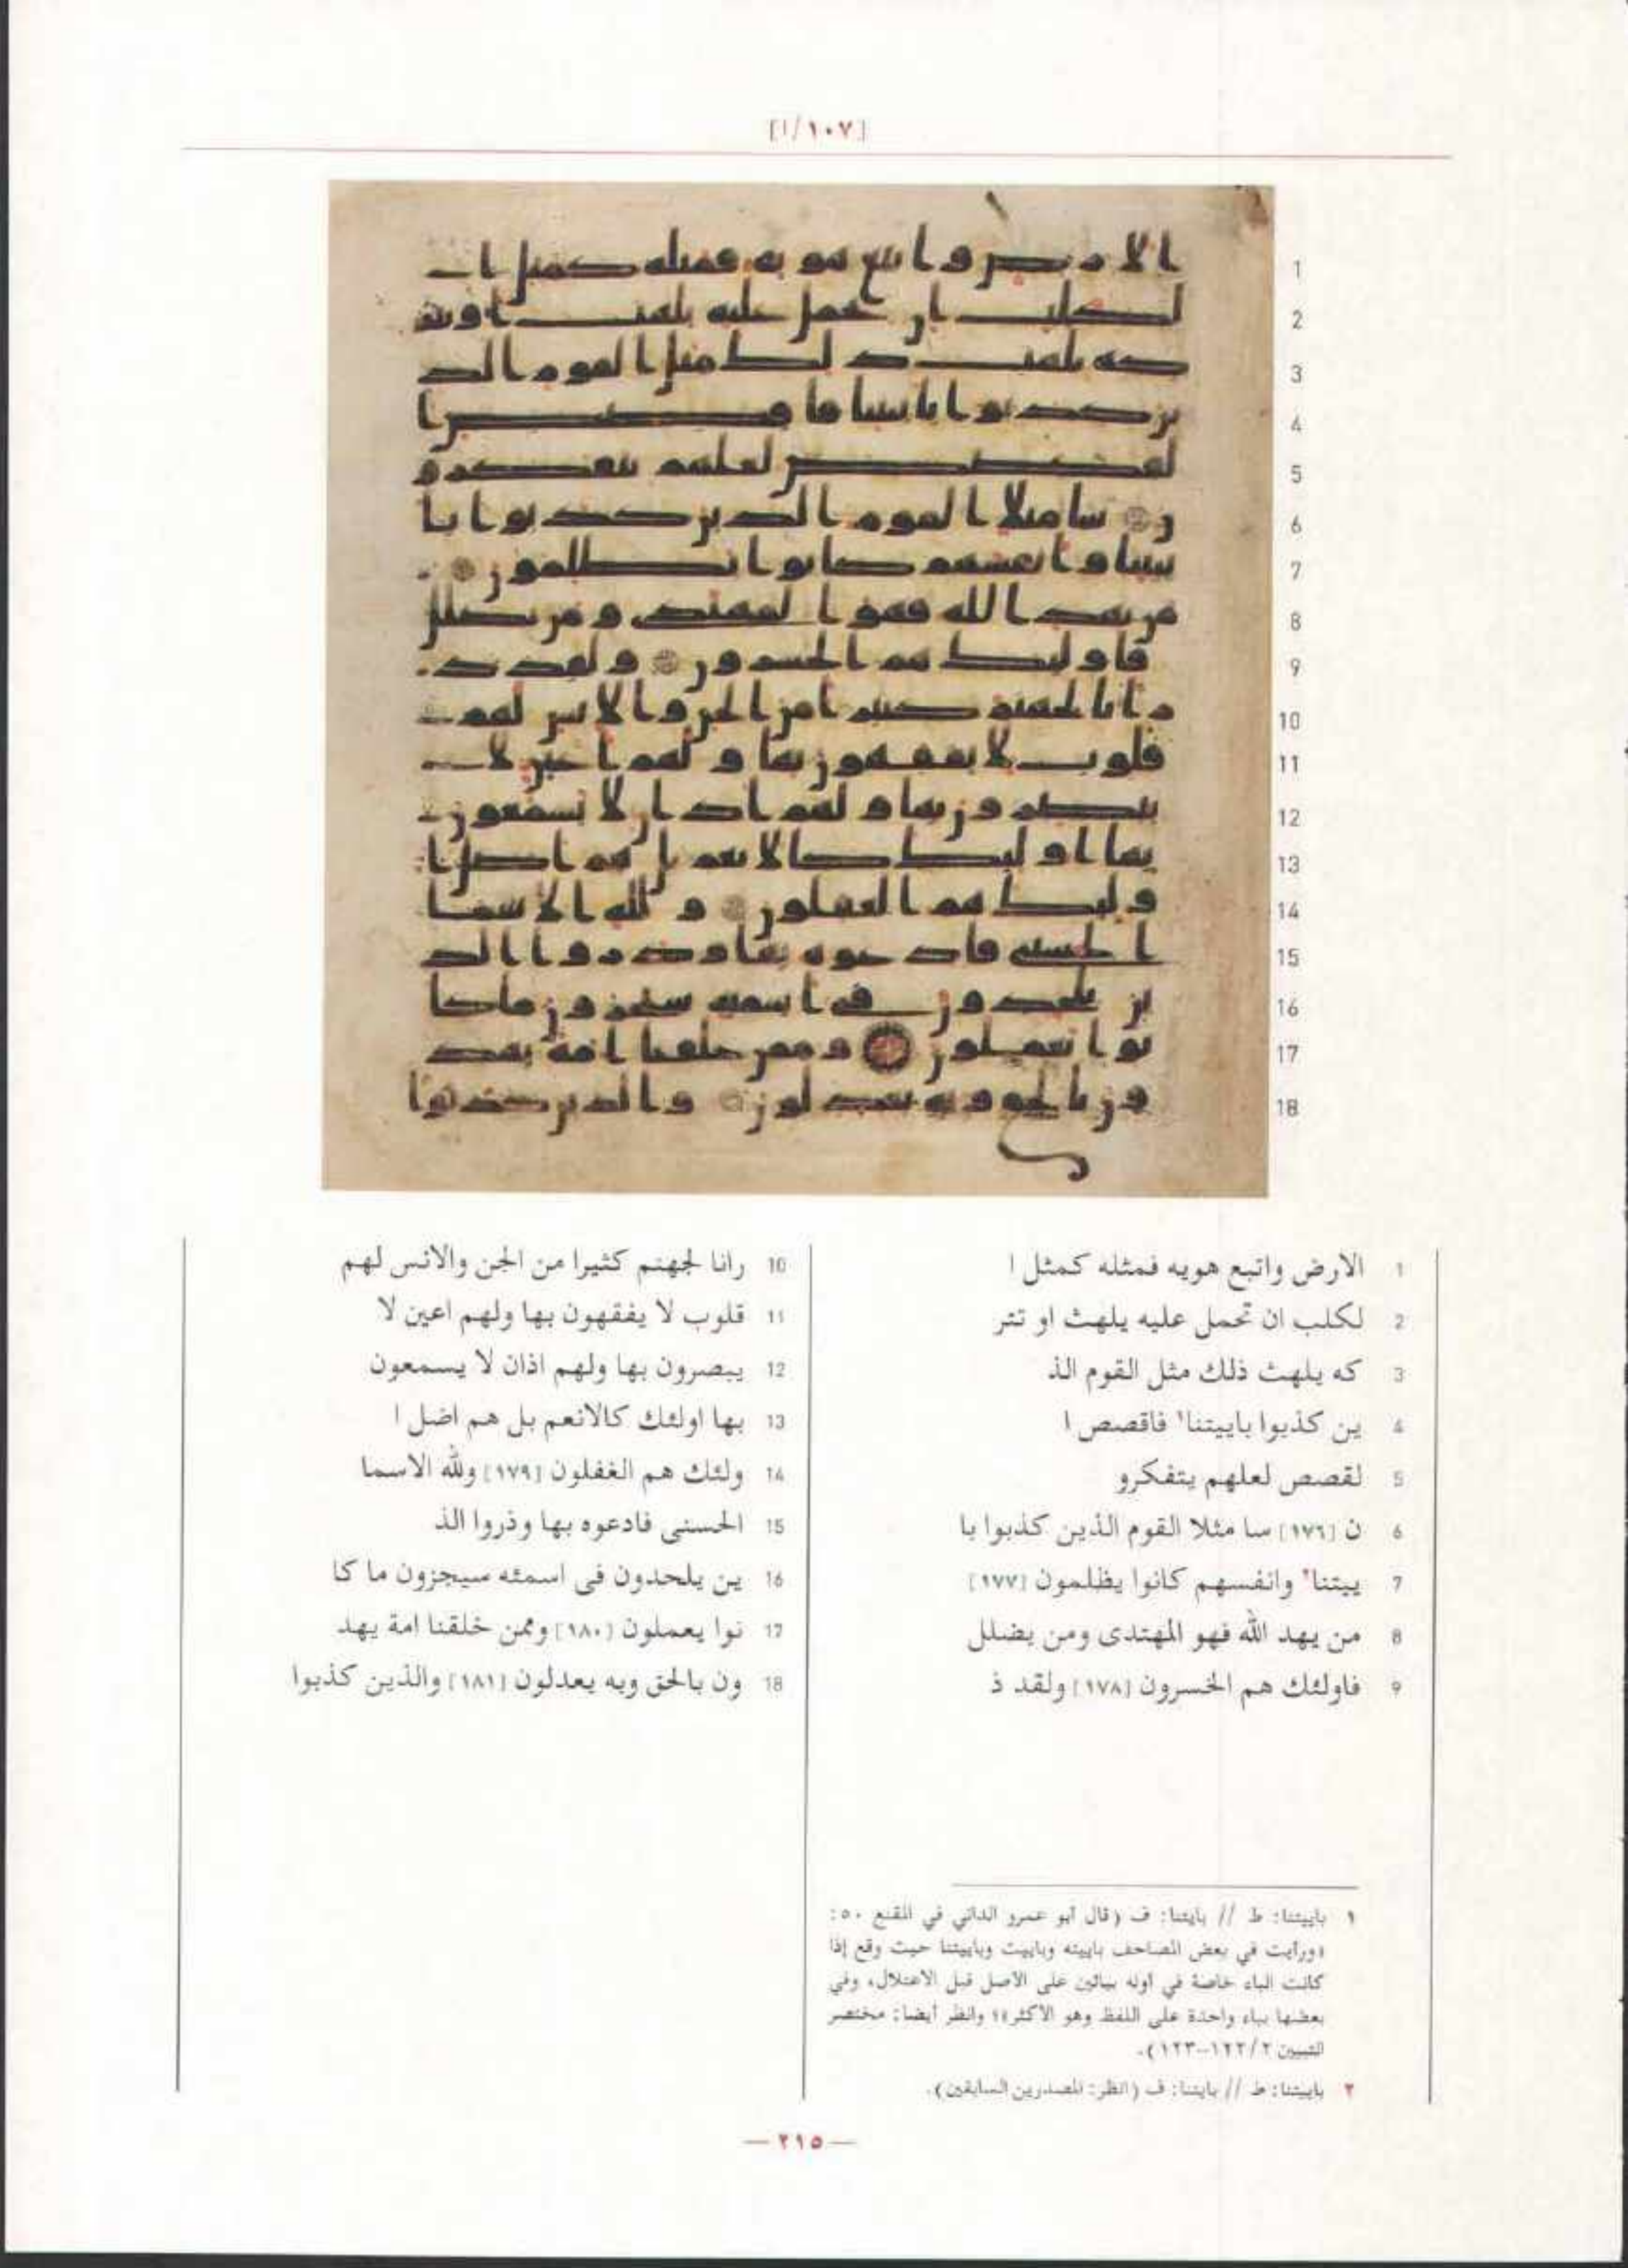 [١٠٧/ا]
1 الارض واتبع هويه فمثله كمثل ا
2 لكلب ان تحمل عليه يلهث او تتر
3 كه يلهث ذلك مثل القوم الذ
4 ين كذبوا باييتنا١ فاقصص ا
5 لقصص لعلهم يتفكرو
6 ن [١٧٦] سا مثلا القوم الذين كذبوا با
7 ييتنا٢ وانفسهم كانوا يظلمون [١٧٧]
8 من يهد الله فهو المهتدى ومن يضلل
9 فاولئك هم الخسرون [١٧٨] ولقد ذ
10 رانا لجهنم كثيرا من الجن والانس لهم
11 قلوب لا يفقهون بها ولهم اعين لا
12 يبصرون بها ولهم اذان لا يسمعون
13 بها اولئك كالانعم بل هم اضل ا
14 ولئك هم الغفلون [١٧٩] ولله الاسما
15 الحسنى فادعوه بها وذروا الذ
16 ين يلحدون فى اسمئه سيجزون ما كا
17 نوا يعملون [١٨٠] وممن خلقنا امة يهد
18 ون بالحق وبه يعدلون [١٨١] والذين كذبوا
١ باييتنا: ط // بايتنا: ف (قال أبو عمرو الداني في المقنع ٥٠:
«ورأيت في بعض المصاحف باييته وباييت وباييتنا حيث وقع إذا
كانت الباء خاصة في أوله بيائين على الأصل قبل الاعتلال، وفي
بعضها بياء واحدة على اللفظ وهو الأكثر»؛ وانظر أيضا: مختصر
التبيين ١٢٢/٢-١٢٣).
٢ باييتنا: ط // بايتنا: ف (انظر: المصدرين السابقين).
— ٢١٥ —